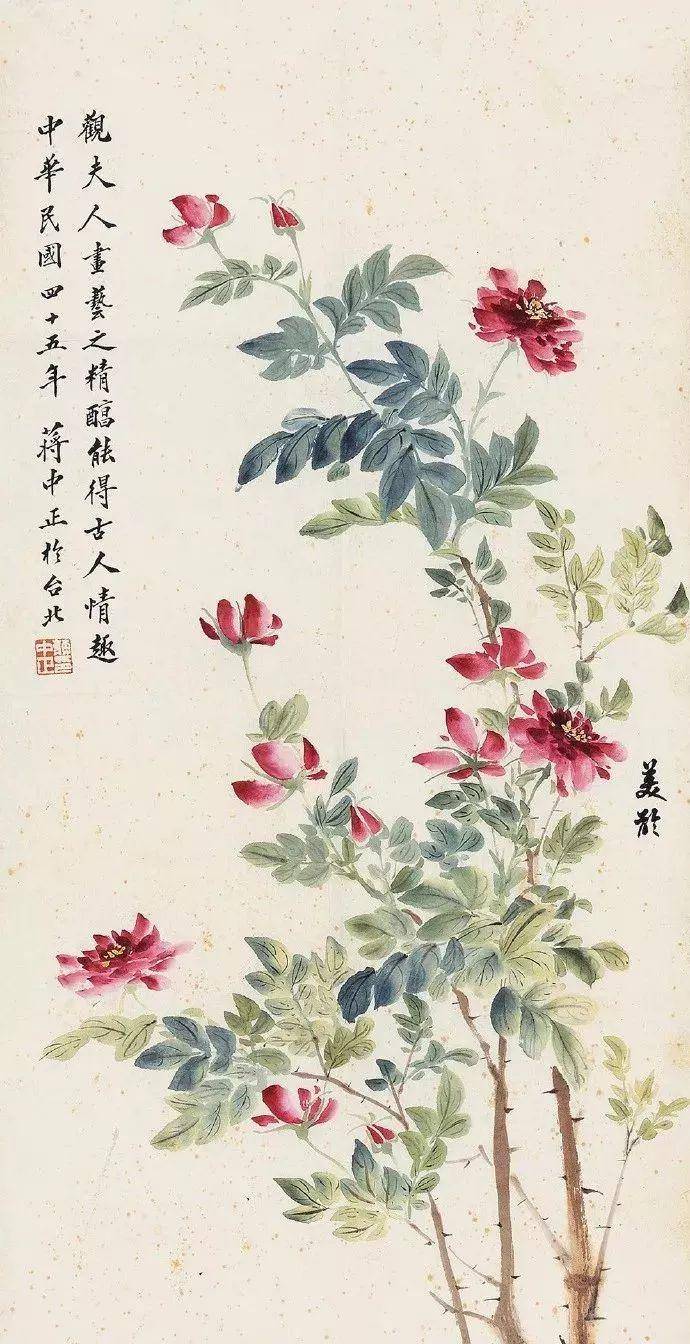 觀夫人畫藝之精醇能得古人情趣
中華民國四十五年 蔣中正於台北
中正
美齡